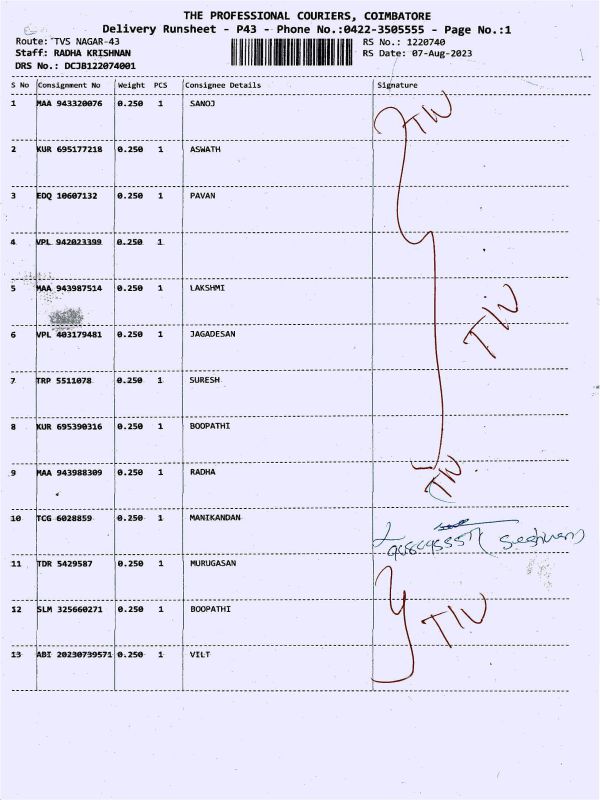 THE PROFESSIONAL COURIERS, COIMBATORE
Delivery Runsheet - P43 - Phone No.:0422-3505555 - Page No.:1
Route: TVS NAGAR-43 RS No.: 1220740
Staff: RADHA KRISHNAN RS Date: 07-Aug-2023
DRS No.: DCJB122074001
S No Consignment No Weight PCS Consignee Details Signature
1 MAA 943320076 0.250 1 SANOJ
TW
2 KUR 695177218 0.250 1 ASWATH
3 EDQ 10607132 0.250 1 PAVAN
4 VPL 942023399 0.250 1
5 MAA 943987514 0.250 1 LAKSHMI
TW
6 VPL 403179481 0.250 1 JAGADESAN
7 TRP 5511078 0.250 1 SURESH
8 KUR 695390316 0.250 1 BOOPATHI
9 MAA 943988309 0.250 1 RADHA
TW
10 TCG 6028859 0.250 1 MANIKANDAN
11 TDR 5429587 0.250 1 MURUGASAN
12 SLM 325660271 0.250 1 BOOPATHI
TW
13 ABI 20230739571 0.250 1 VILT